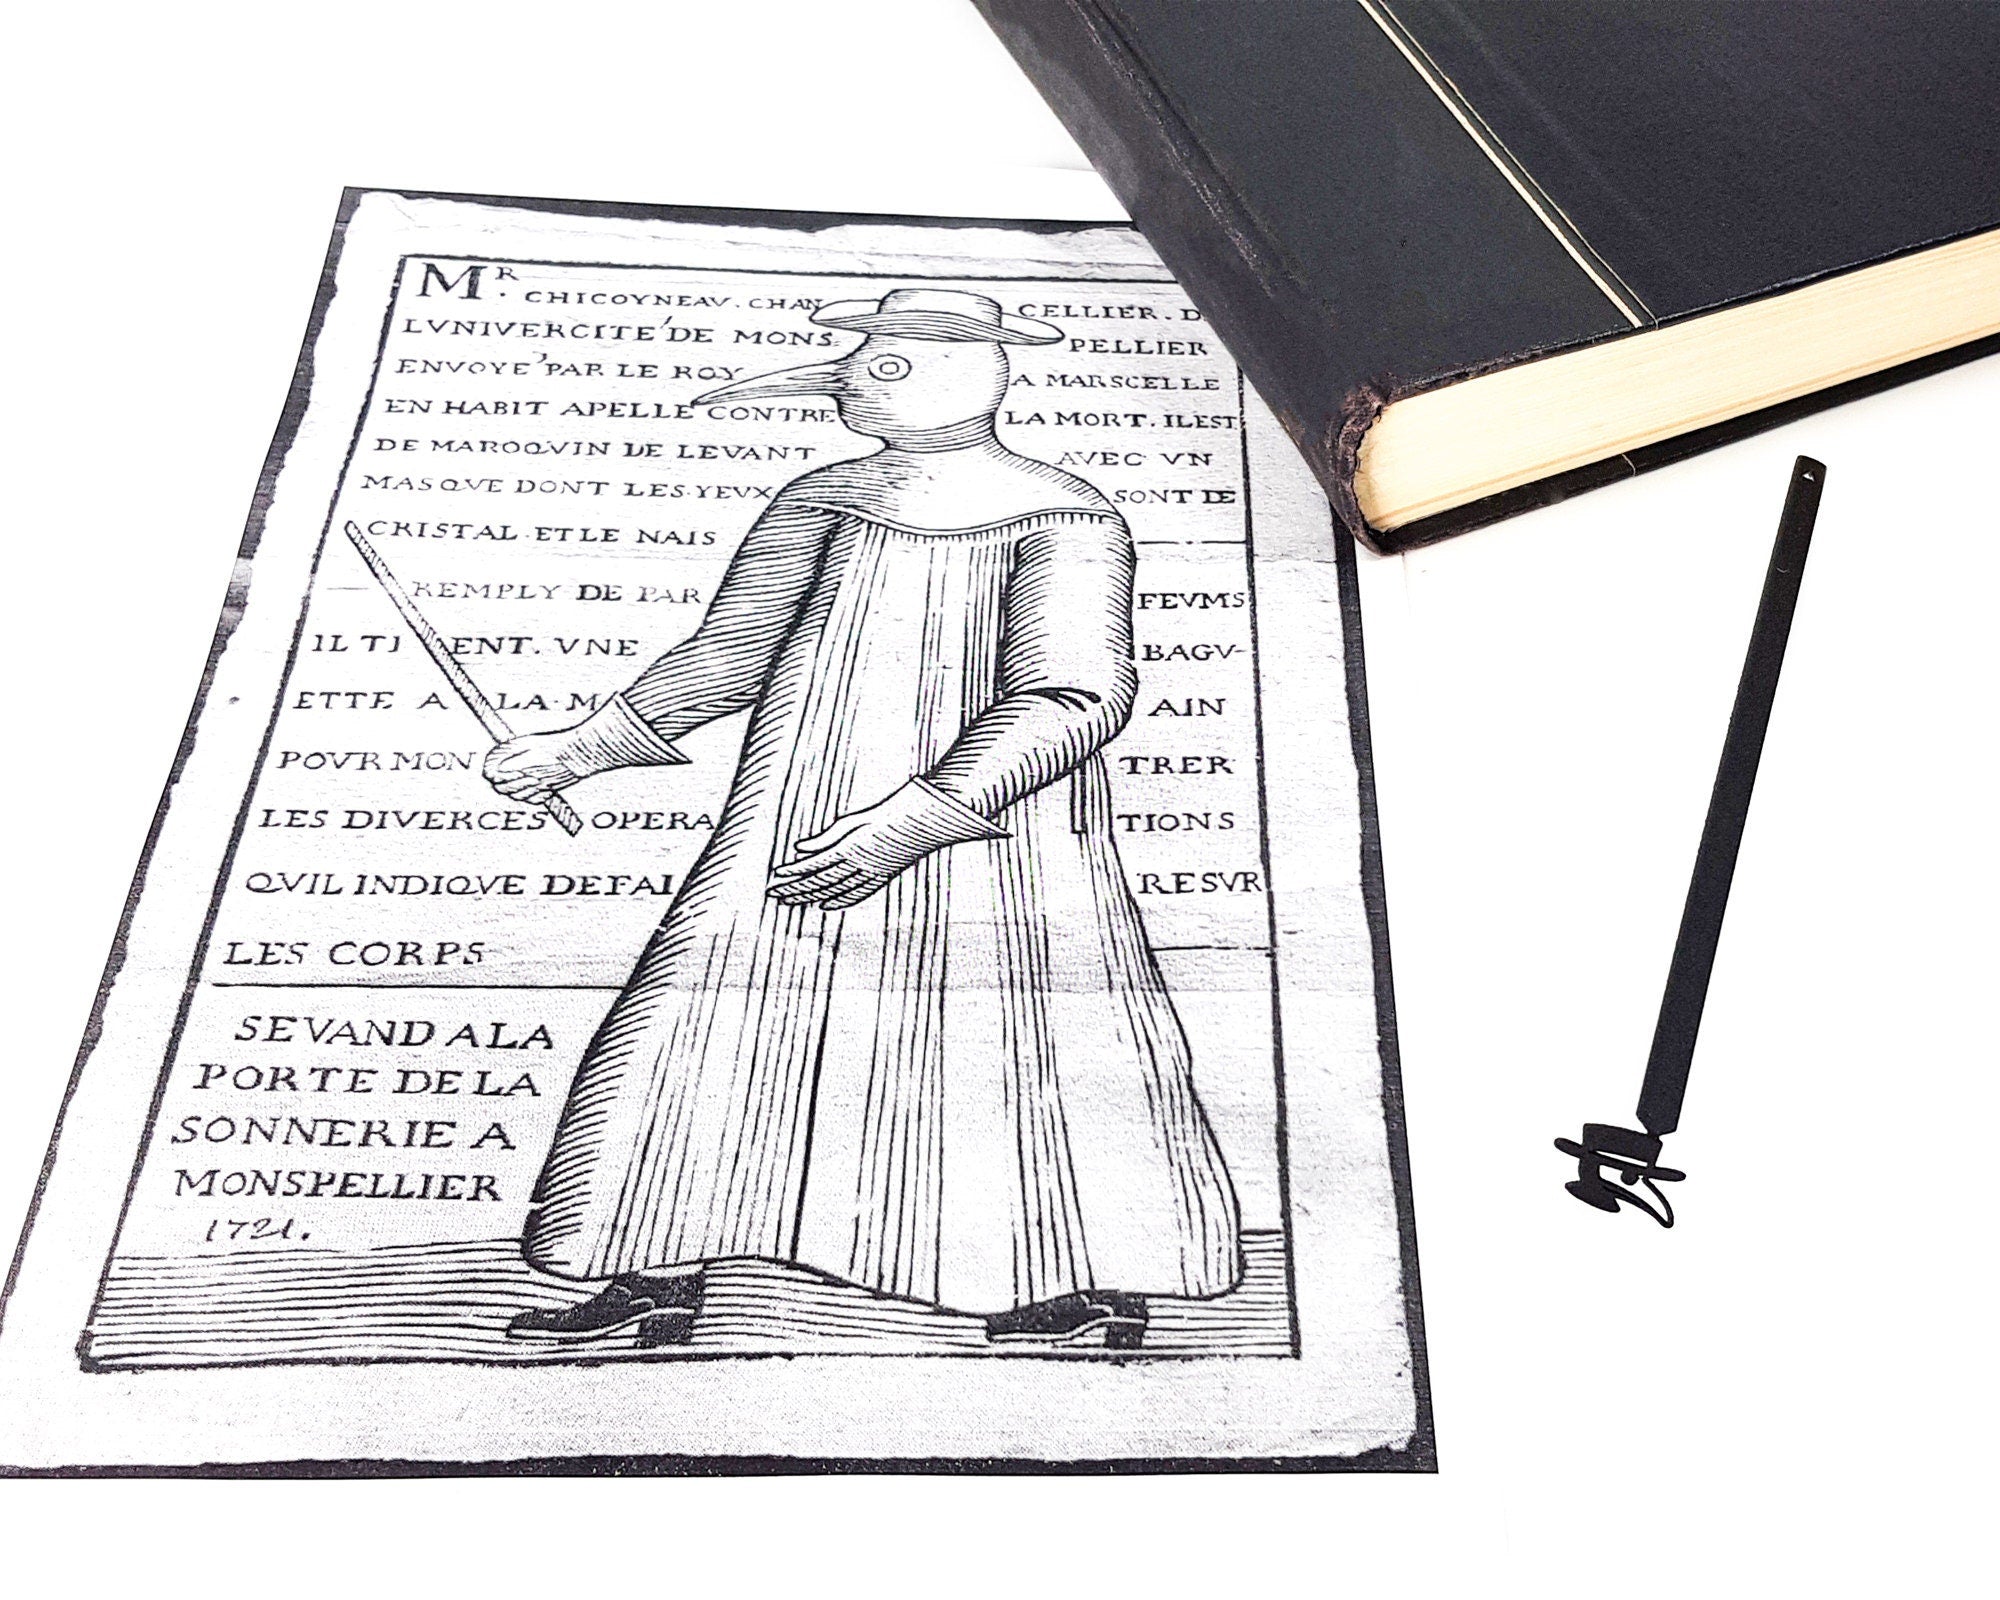 MR. CHICOYNEAV. CHAN CELLIER. D
LVNIVERCITE' DE MONS. PELLIER
ENVOYE' PAR LE ROY A MARSCELLE
EN HABIT APELLE CONTRE LA MORT. IL EST
DE MAROQVIN DE LEVANT AVEC VN
MASQVE DONT LES. YEVX SONT DE
CRISTAL. ET LE NAIS
REMPLY DE PAR FEVMS
IL TI ENT. VNE BAGV-
ETTE A LA. M AIN
POVR MON TRER
LES DIVERCES OPERA TIONS
QVIL INDIQVE DEFAI RE SVR
LES CORPS
SE VAND A LA
PORTE DE LA
SONNERIE A
MONSPELLIER
1721.